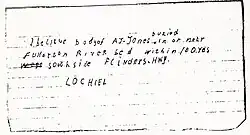 buried
I believe body of AJ-Jones in or near
Fullarton River bed within 100 yds
south side Flinders. HWY.
LOCHIEL